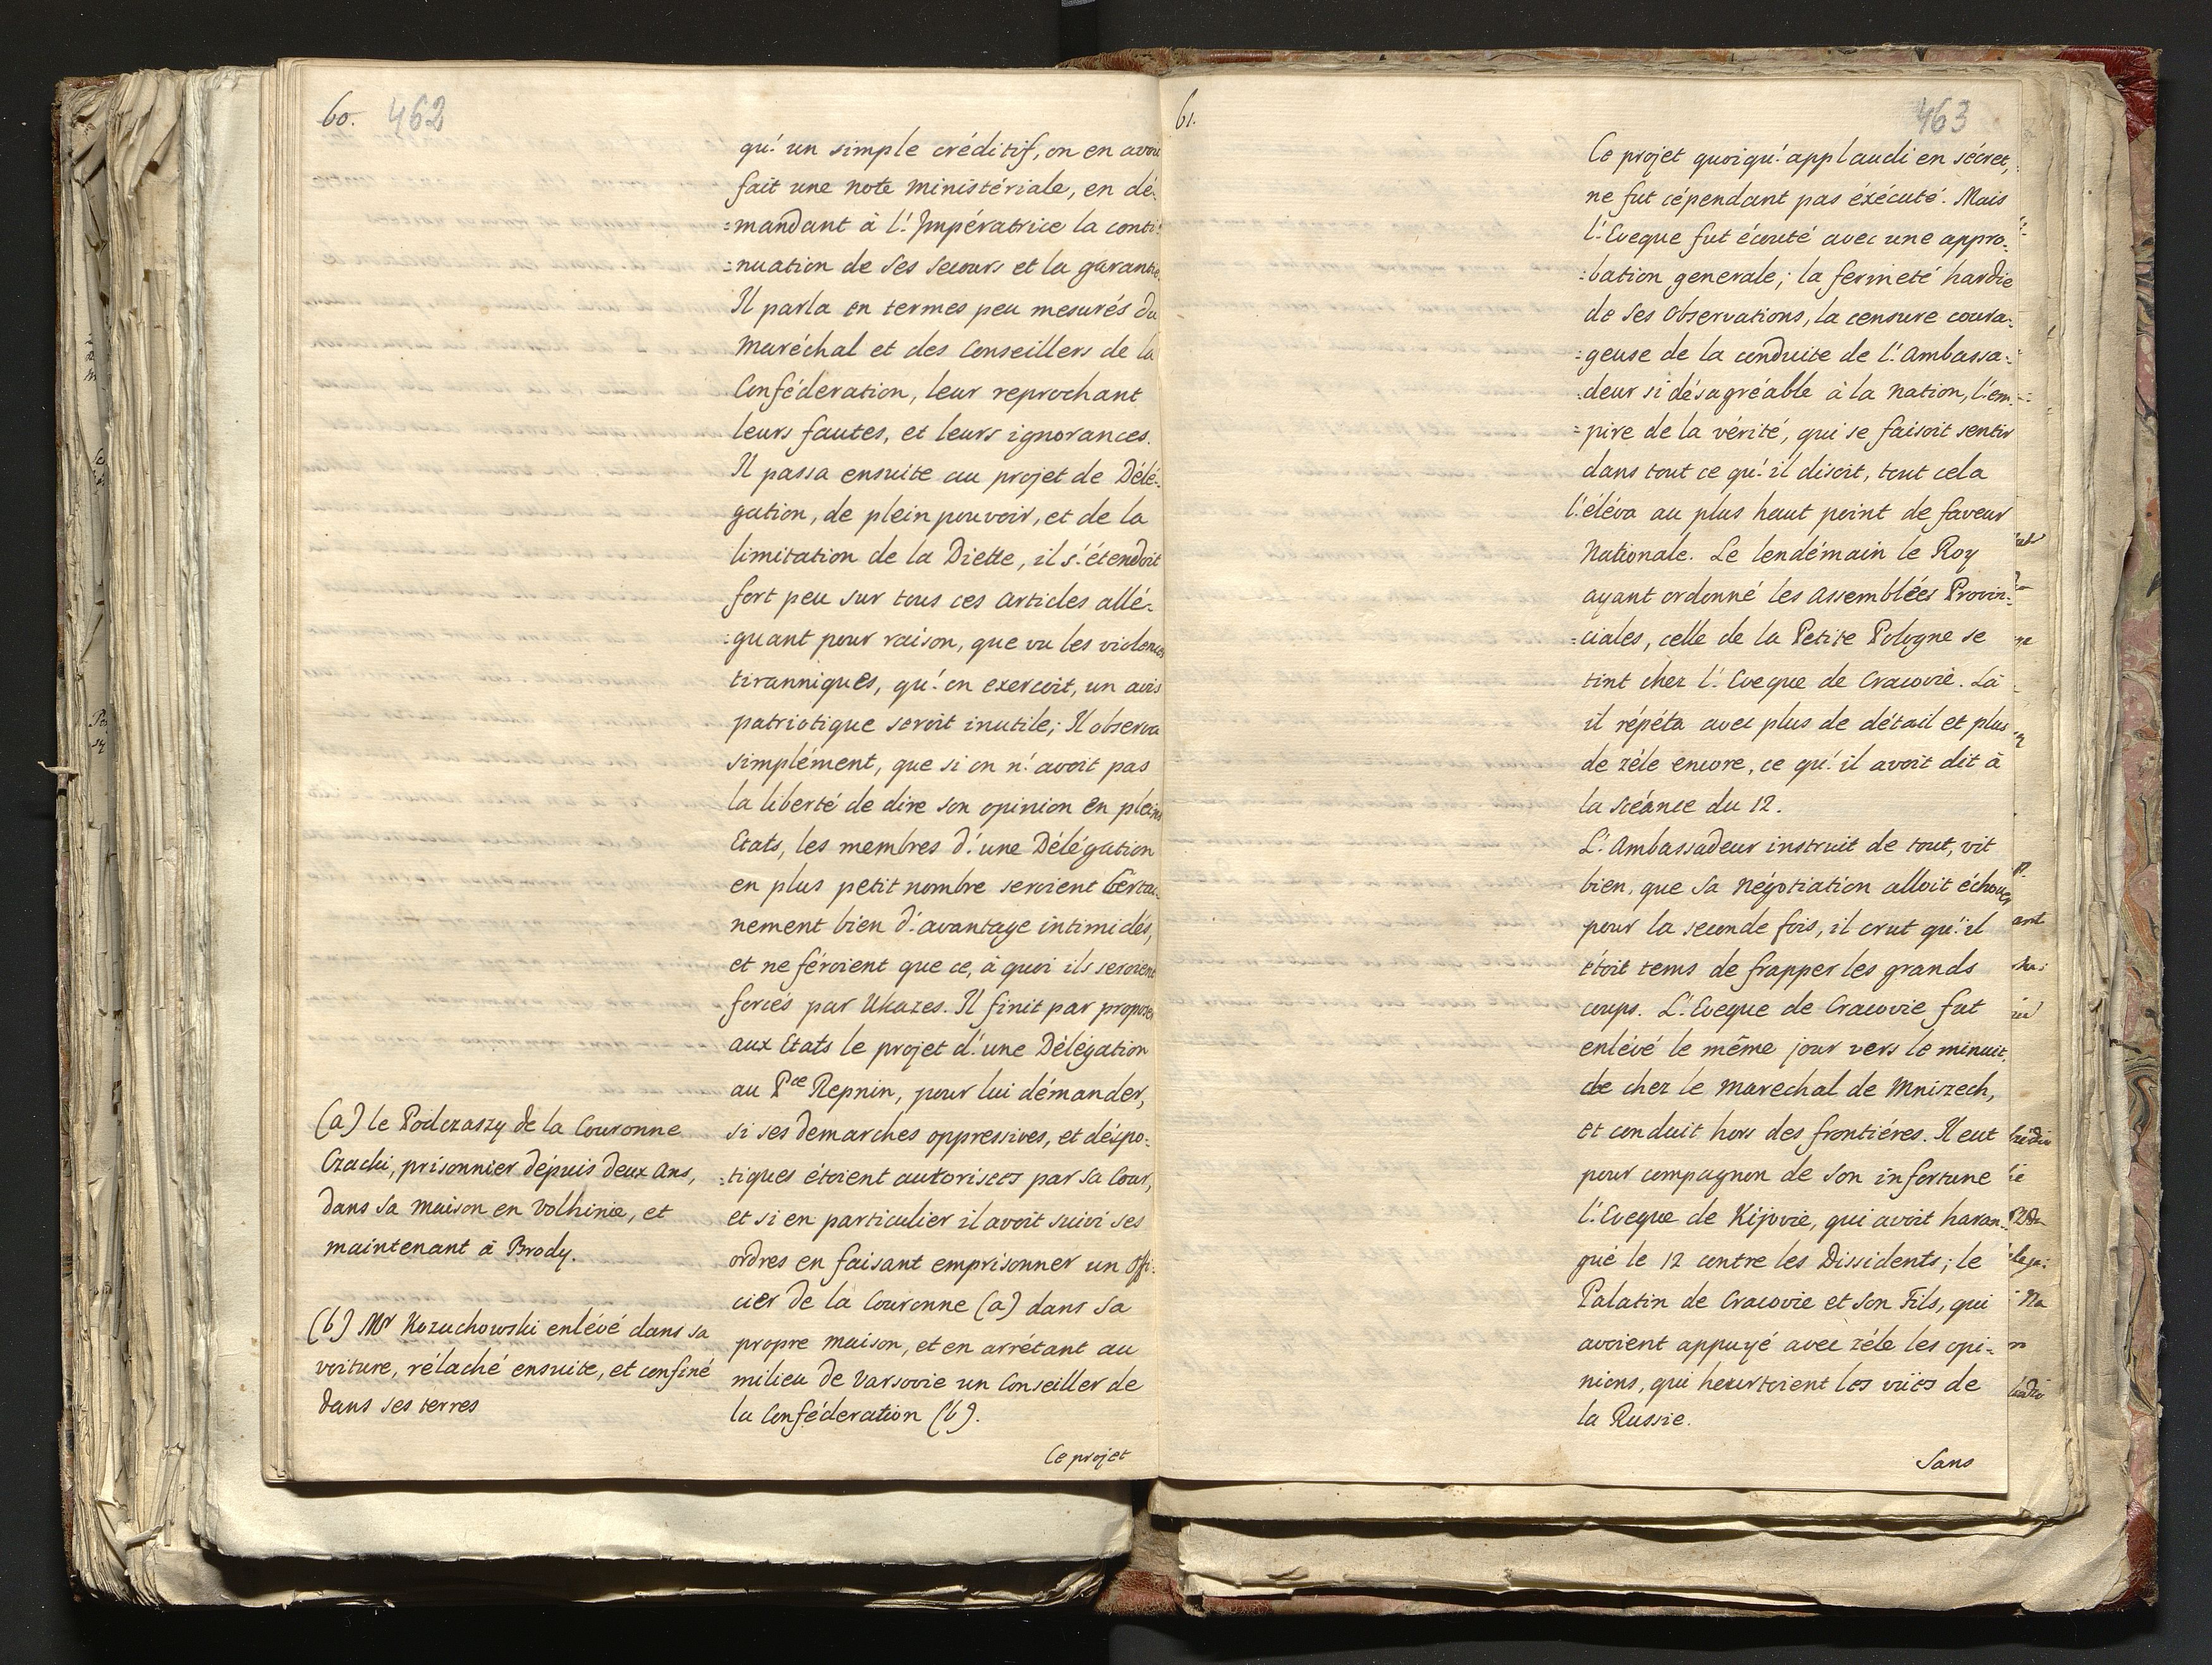 60. 462
qu'un simple créditif, on en avoit
fait une note ministériale, en dé-
=mandant à l'Impératrice la conti-
=nuation de ses secours et la garantie.
Il parla en termes peu mesurés du
Maréchal et des Conseillers de la
Conféderation, leur reprochant
leurs fautes, et leurs ignorances.
Il passa ensuite au projet de Délé-
gation, de plein pouvoir, et de la
limitation de la Diette, il s'étendoit
fort peu sur tous ces articles allé-
=guant pour raison, que vu les violences
tiranniques, qu'on exercoit, un avis
patriotique seroit inutile; Il observa
simplément, que si on n'avoit pas
la liberté de dire son opinion en pleins
Etats, les membres d'une Délégation
en plus petit nombre seroient Certai-
nement bien d'avantage intimidés,
et ne féroient que ce, à quoi ils seroient
forcés par Ukazes. Il finit par proposer
aux Etats le projet d'une Délégation
au Pce Repnin, pour lui démander,
si ses demarches oppressives, et déspo-
=tiques étoient autorisees par sa Cour,
et si en particulier il avoit suivi ses
ordres en faisant emprisonner un Offi-
cier de la Couronne (a) dans sa
propre maison, et en arrétant au
milieu de Varsovie un Conseiller de
la Conféderation (b).
Ce projet
(a) le Podczaszy de la Couronne
Czacki, prisonnier dépuis deux ans,
dans sa maison en Volhinie, et
maintenant à Brody.
(b) Mr Kozuchowski enlévé dans sa
voiture, rélaché ensuite, et confiné
dans ses terres
61. 463
Ce projet quoiqu'applaudi en sécret,
ne fut cépendant pas éxécuté. Mais
l'Eveque fut écouté avec une appro-
=bation generale; la fermeté hardie
de ses Observations, la censure coura-
=geuse de la conduite de l'Ambassa-
=deur si désagréable à la Nation, l'em-
=pire de la vérité, qui se faisoit sentir
dans tout ce qu'il disoit, tout cela
l'éléva au plus haut point de faveur
Nationale. Le lendémain le Roy
ayant ordonné les Assemblées Provin-
=ciales, celle de la Petite Pologne se
tint chez l'Eveque de Cracovie. Là
il répéta avec plus de détail et plus
de zéle encore, ce qu'il avoit dit à
la Scéance du 12.
L'Ambassadeur instruit de tout, vit
bien, que sa négotiation alloit échouer
pour la seconde fois, il crut qu'il
étoit tems de frapper les grands
coups. L'Eveque de Cracovie fut
enlévé le même jour vers le minuit,
de chez le Marechal de Mniszech,
et conduit hors des frontiéres. Il eut
pour compagnon de son infortune
l'Eveque de Kijovie, qui avoit haran-
gué le 12 contre les Dissidents; le
Palatin de Cracovie et son Fils, qui
avoient appuyé avec zéle les opi-
nions, qui heurtoient les vuës de
la Russie.
Sans